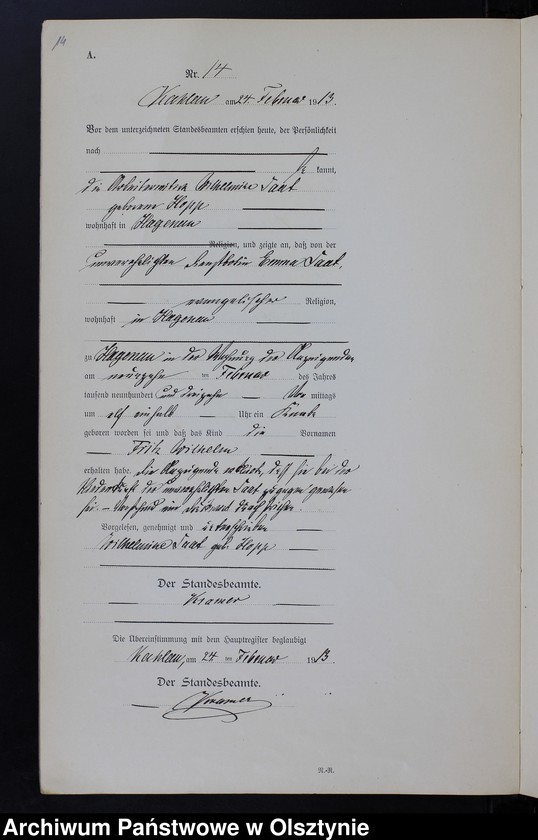 14
A.
Nr. 14
Kahlau am 24. Februar 1913.
Vor dem unterzeichneten Standesbeamten erschien heute, der Persönlichkeit
nach
be kannt,
die Arbeiterwitwe Wilhelmine Saat
geborene Hopp
wohnhaft in Hagenau
Religion, und zeigte an, daß von der
unverehelichten Dienstbotin Emma Saat,
evangelischer Religion,
wohnhaft in Hagenau
zu Hagenau in der Wohnung der Anzeigenden
am neunzehn im Februar des Jahres
tausend neunhundert und dreizehn Vor mittags
um elf einhalb Uhr ein Knabe
geboren worden sei und daß das Kind die Vornamen
Fritz Wilhelm
erhalten habe. Die Anzeigende erklärte, daß sie bei der
Niederkunft der unverehelichten Saat zugegen gewesen
sei. – Vorstehend ein Druckwort gestrichen.
Vorgelesen, genehmigt und unterschrieben
Wilhelmine Saat geb. Hopp
Der Standesbeamte.
Kramer
Die Übereinstimmung mit dem Hauptregister beglaubigt
Kahlau, am 24 im Februar 1913.
Der Standesbeamte.
Kramer
N.-R.
Archiwum Państwowe w Olsztynie